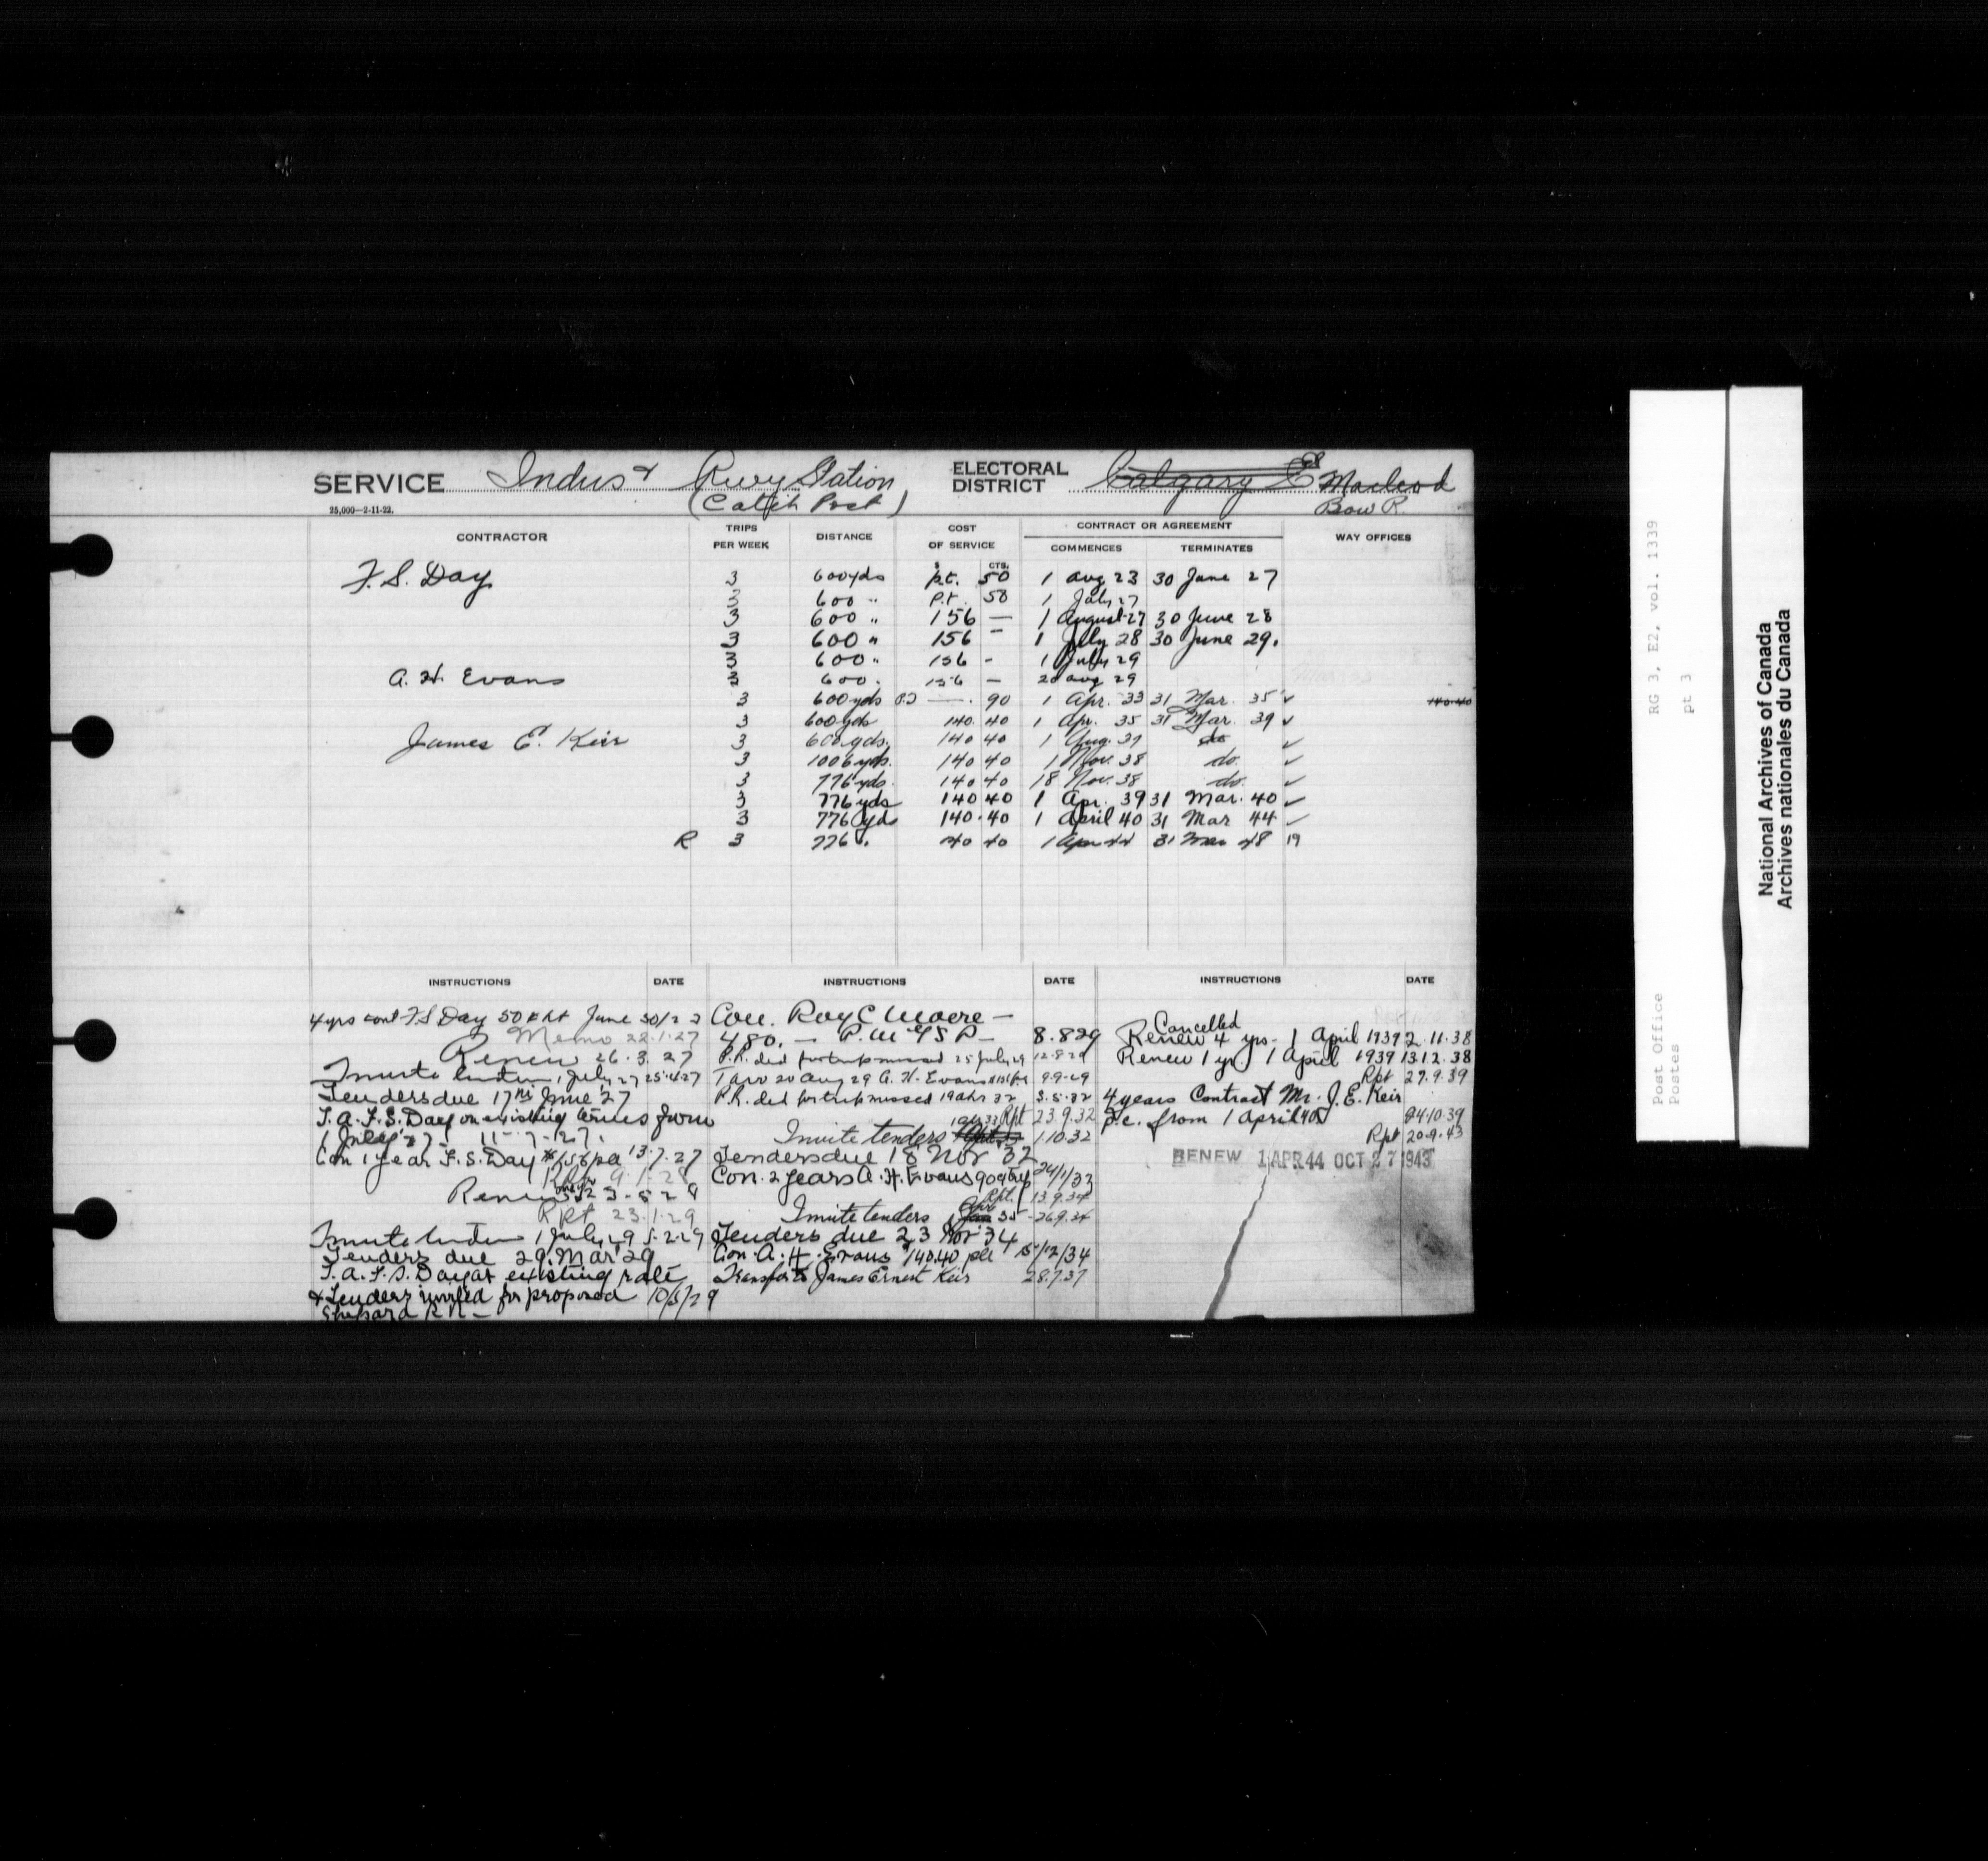 SERVICE Indus & Rwy Station ELECTORAL DISTRICT Calgary E Macleod
(Catch Post) Bow R.
25,000—2-11-22.
CONTRACTOR TRIPS PER WEEK DISTANCE COST OF SERVICE CONTRACT OR AGREEMENT WAY OFFICES
COMMENCES TERMINATES
$ CTS.
F. S. Day 3 600 yds p.t. 50 1 Aug 23 30 June 27
3 600 " P.t. 50 1 July 27
3 600 " 156 — 1 August 27 30 June 28
3 600 " 156 — 1 July 28 30 June 29.
3 600 " 156 - 1 July 29
A. H. Evans 3 600 . 156 — 20 Aug 29
3 600 yds — . 90 1 Apr. 33 31 Mar. 35 ✓ 140.40
3 600 yds 140. 40 1 Apr. 35 31 Mar. 39 ✓
James E. Keir 3 600 yds. 140 40 1 Aug. 37 do ✓
3 1006 yds. 140 40 1 Nov. 38 do. ✓
3 776 yds. 140 40 18 Nov. 38 do. ✓
3 776 yds 140 40 1 Apr. 39 31 Mar. 40 ✓
3 776 yds 140.40 1 April 40 31 Mar 44 ✓
R 3 776 . 140 40 1 Apr 44 31 Mar 48 19
INSTRUCTIONS DATE
4 yrs cont F S Day 50 p rt June 30/23
Memo 22.1.27
Renew 26.3.27
Invite tenders 1 July 27 25.4.27
Tenders due 17th June 27
T. A. F. S. Day on existing terms from
1 July 27 11-7-27.
Con 1 year F. S. Day $156 pa 13.7.27
Rpt 9.1.28
Renew
Rpt 23.1.29
Invite tenders 1 July 29 5.2.29
Tenders due 29 Mar 29
T. A. F. S. Day at existing rate
& Tenders invited for proposed 10/5/29
Shepard R R —
INSTRUCTIONS DATE
Con. Roy C Moore —
480. — 8.8.29
P.R. ded for trip missed 25 July 29 12.8.29
T apv 20 Aug 29 A. H. Evans 9.9.29
P.R. ded for trip missed 19 Apr 32 3.5.32
1 Apr 33 Rpt 23.9.32
Invite tenders 1.10.32
Tenders due 18 Nov 32
Con. 2 years A. H. Evans 90¢ trip 24/1/33
Rpt. 13.9.34
Apr
Invite tenders 1 Jan 35 - 26.9.34
Tenders due 23 Nov 34
Con. A. H. Evans $140.40 pa 15/12/34
Transfer to James Ernest Keir 28.7.37
INSTRUCTIONS DATE
Cancelled
Renew 4 yrs. 1 April 1939 2.11.38
Renew 1 yr. 1 April 1939 13.12.38
Rpt 27.9.39
4 years Contract Mr. J. E. Keir
p.c. from 1 April 40 24.10.39
Rpt 20.9.43
RENEW 1 APR 44 OCT 27 1943
RG 3, E2, vol. 1339
pt 3
Post Office
Postes
National Archives of Canada
Archives nationales du Canada